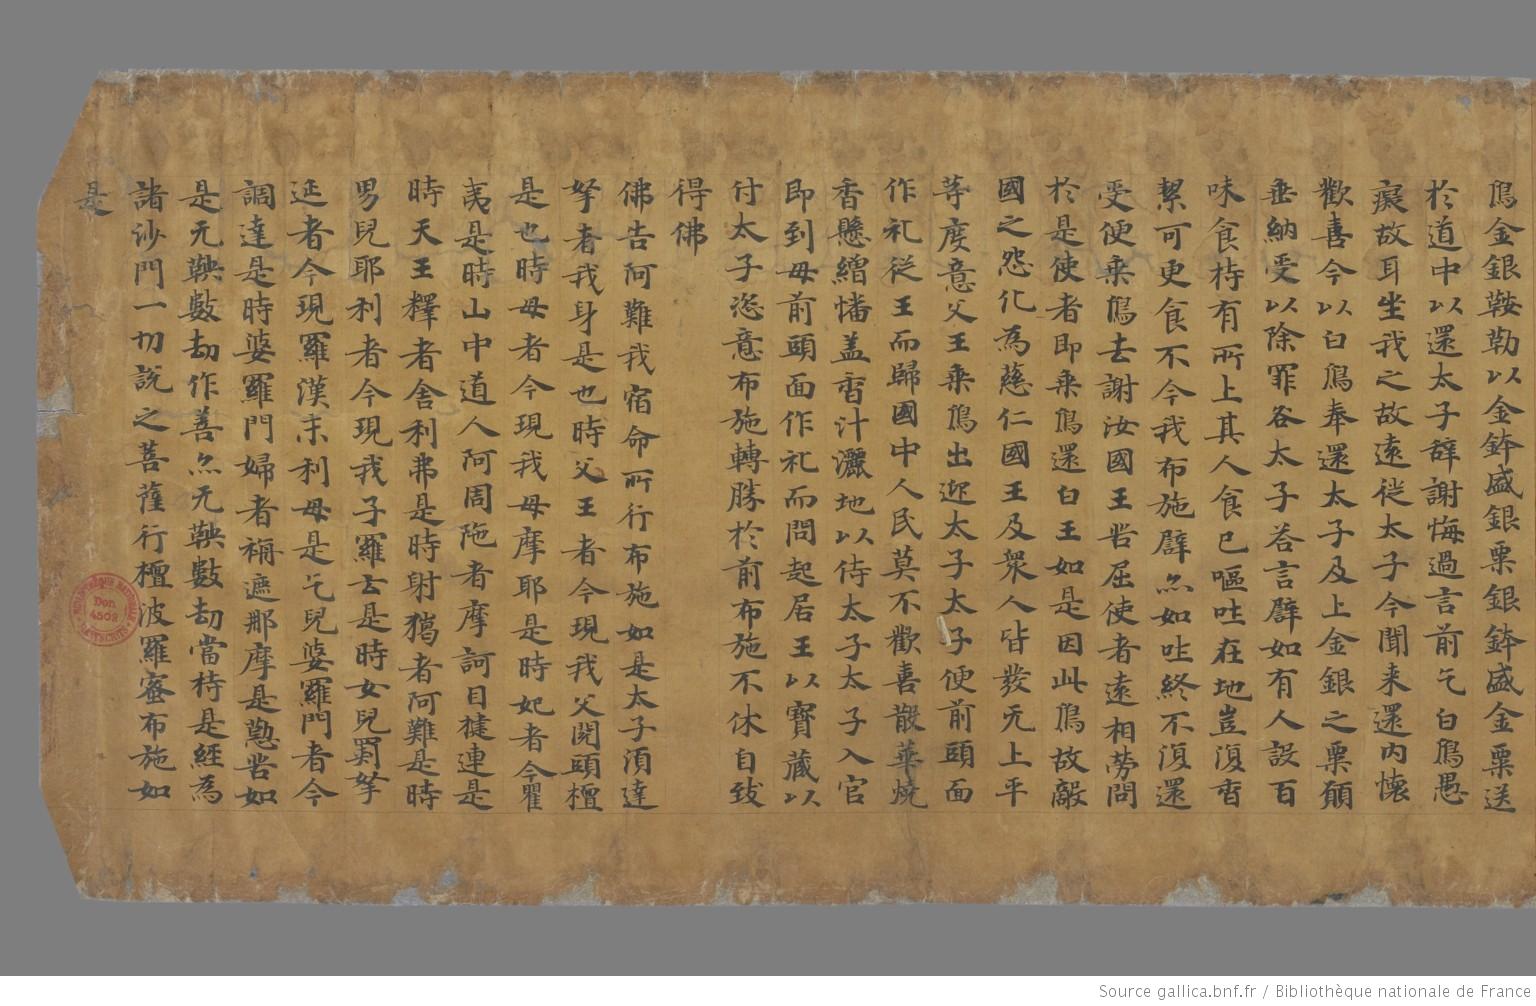 鳥金銀鞍勒以金鉢盛銀粟銀鉢盛金粟送
於道中以還太子辞謝悔過言前乞白鳥愚
癡故耳坐我之故遠従太子今聞来還内懐
歡喜今以白鳥奉還太子及上金銀之粟願
垂納受以除罪咎太子答言譬如有人設百
味食持有所上其人食已嘔吐在地豈復香
潔可更食不今我布施譬尒如吐終不復還
受便乗鳥去謝汝國王苦屈使者遠相勞問
於是使者即乗鳥還白王如是因此鳥故敵
國之怨化為慈仁國王及衆人皆發无上平
等度意父王乗鳥出迎太子太子便前頭面
作礼従王而歸國中人民莫不歡喜散華燒
香懸繒幡盖香汁灑地以侍太子太子入宫
即到母前頭面作礼而問起居王以寶藏以
付太子恣意布施轉勝於前布施不休自致
得佛
佛告阿難我宿命所行布施如是太子湏達
拏者我身是也時父王者今現我父閲頭檀
是也時母者今現我母摩耶是時妃者今瞿
夷是時山中道人阿周陁者摩訶目揵連是
時天王釋者舎利弗是時射獦者阿難是時
男兒耶利者今現我子羅云是時女兒罽拏
延者今現羅漢末利母是乞兒婆羅門者今
調達是時婆羅門婦者旃遮那摩是懃苦如
是无鞅數劫作善尒无鞅數劫當持是經為
諸沙門一切説之菩薩行檀波羅蜜布施如
是
BIBLIOTHÈQUE NATIONALE
Don
4502
MANUSCRITS
Source gallica.bnf.fr / Bibliothèque nationale de France